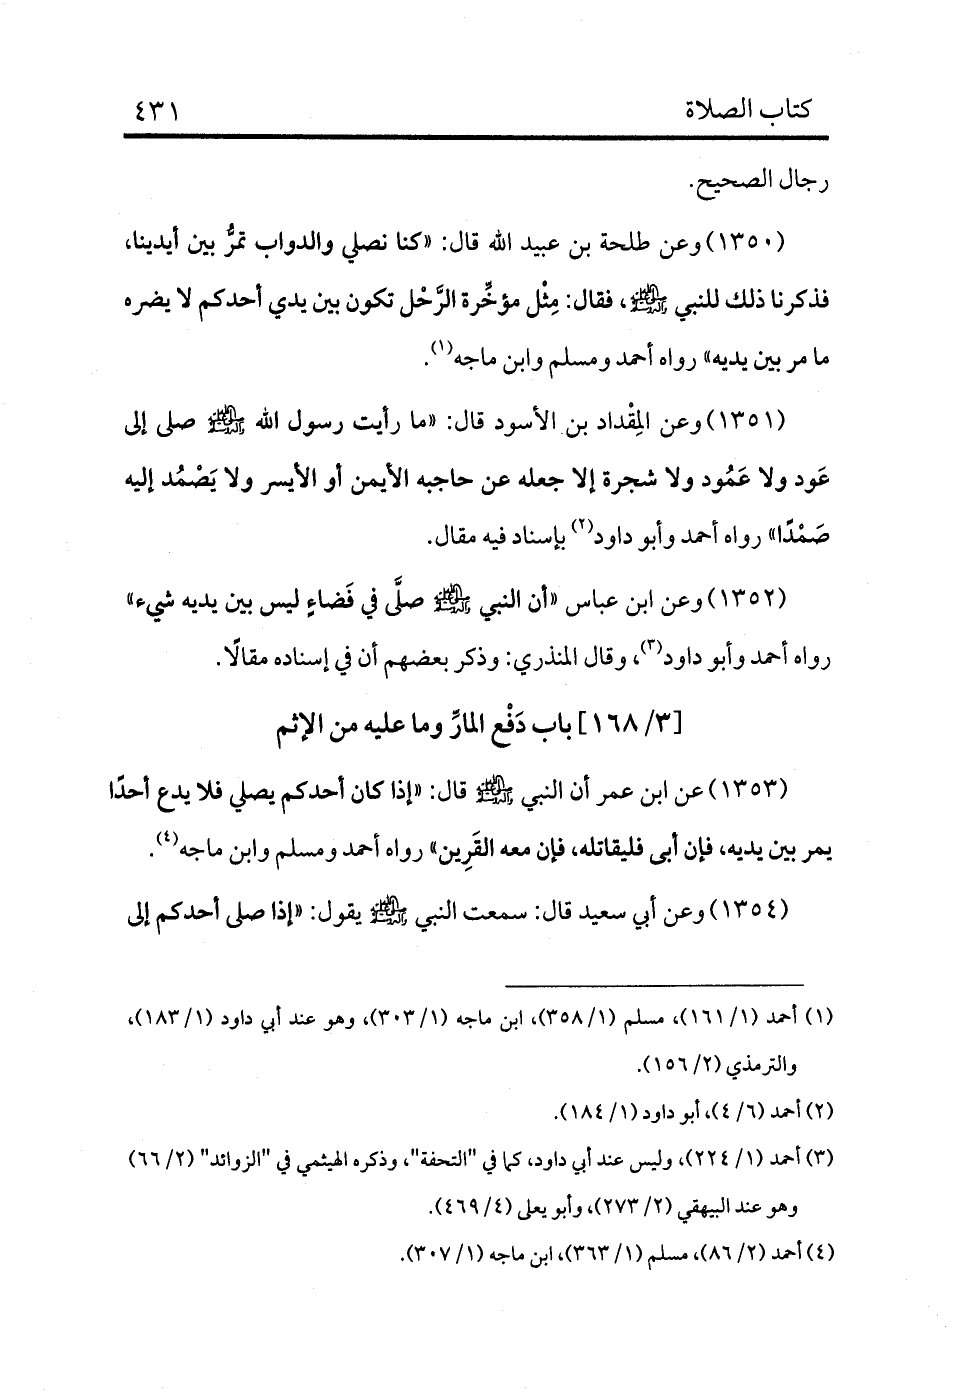 كتاب الصلاة ٤٣١
رجال الصحيح.
(١٣٥٠) وعن طلحة بن عبيد الله قال: «كنا نصلي والدواب تمرُّ بين أيدينا،
فذكرنا ذلك للنبي ﷺ، فقال: مِثْل مؤخِّرة الرَّحْل تكون بين يدي أحدكم لا يضره
ما مر بين يديه» رواه أحمد ومسلم وابن ماجه(١).
(١٣٥١) وعن المِقْداد بن الأسود قال: «ما رأيت رسول الله ﷺ صلى إلى
عَود ولا عَمُود ولا شجرة إلا جعله عن حاجبه الأيمن أو الأيسر ولا يَصْمُد إليه
صَمْدًا» رواه أحمد وأبو داود(٢) بإسناد فيه مقال.
(١٣٥٢) وعن ابن عباس «أن النبي ﷺ صلَّى في فَضاءٍ ليس بين يديه شيء»
رواه أحمد وأبو داود(٣)، وقال المنذري: وذكر بعضهم أن في إسناده مقالًا.
[٣/ ١٦٨] باب دَفْع المارِّ وما عليه من الإثم
(١٣٥٣) عن ابن عمر أن النبي ﷺ قال: «إذا كان أحدكم يصلي فلا يدع أحدًا
يمر بين يديه، فإن أبى فليقاتله، فإن معه القَرِين» رواه أحمد ومسلم وابن ماجه(٤).
(١٣٥٤) وعن أبي سعيد قال: سمعت النبي ﷺ يقول: «إذا صلى أحدكم إلى
(١) أحمد (١/ ١٦١)، مسلم (١/ ٣٥٨)، ابن ماجه (١/ ٣٠٣)، وهو عند أبي داود (١/ ١٨٣)،
والترمذي (٢/ ١٥٦).
(٢) أحمد (٦/ ٤)، أبو داود (١/ ١٨٤).
(٣) أحمد (١/ ٢٢٤)، وليس عند أبي داود، كما في "التحفة"، وذكره الهيثمي في "الزوائد" (٢/ ٦٦)
وهو عند البيهقي (٢/ ٢٧٣)، وأبو يعلى (٤/ ٤٦٩).
(٤) أحمد (٢/ ٨٦)، مسلم (١/ ٣٦٣)، ابن ماجه (١/ ٣٠٧).